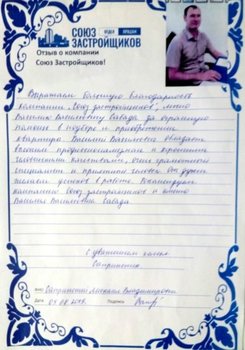 СОЮЗ ОТДЕЛ ПРОДАЖ
ЗАСТРОЙЩИКОВ
Отзыв о компании
Союз Застройщиков!
Выражаем большую благодарность
компании "Союз застройщиков", лично
Василию Васильевичу Саваде, за оказанную
помощь в подборе и приобретении
квартиры. Василий Васильевич обладает
высоким профессионализмом и хорошими
человеческими качествами, очень грамотный
специалист и приятный человек. От души
желаем успехов в работе. Рекомендуем
компанию Союз застройщиков и лично
Василия Васильевича Саваду.
С уважением семья
ФИО
Владимировна
Дата 05.08.2018 Подпись